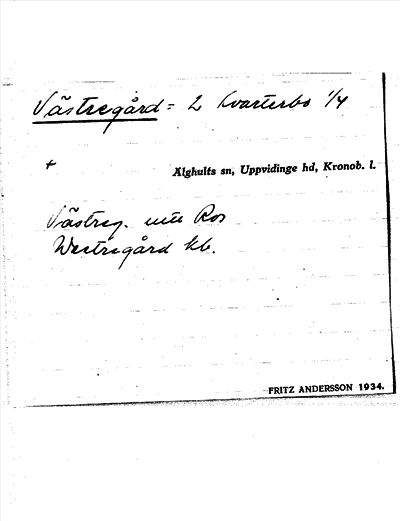 Västregård = 2 Kvarterbo 1/4
+
Älghults sn, Uppvidinge hd, Kronob. l.
Västreg. Ros
Westregård kb.
FRITZ ANDERSSON 1934.